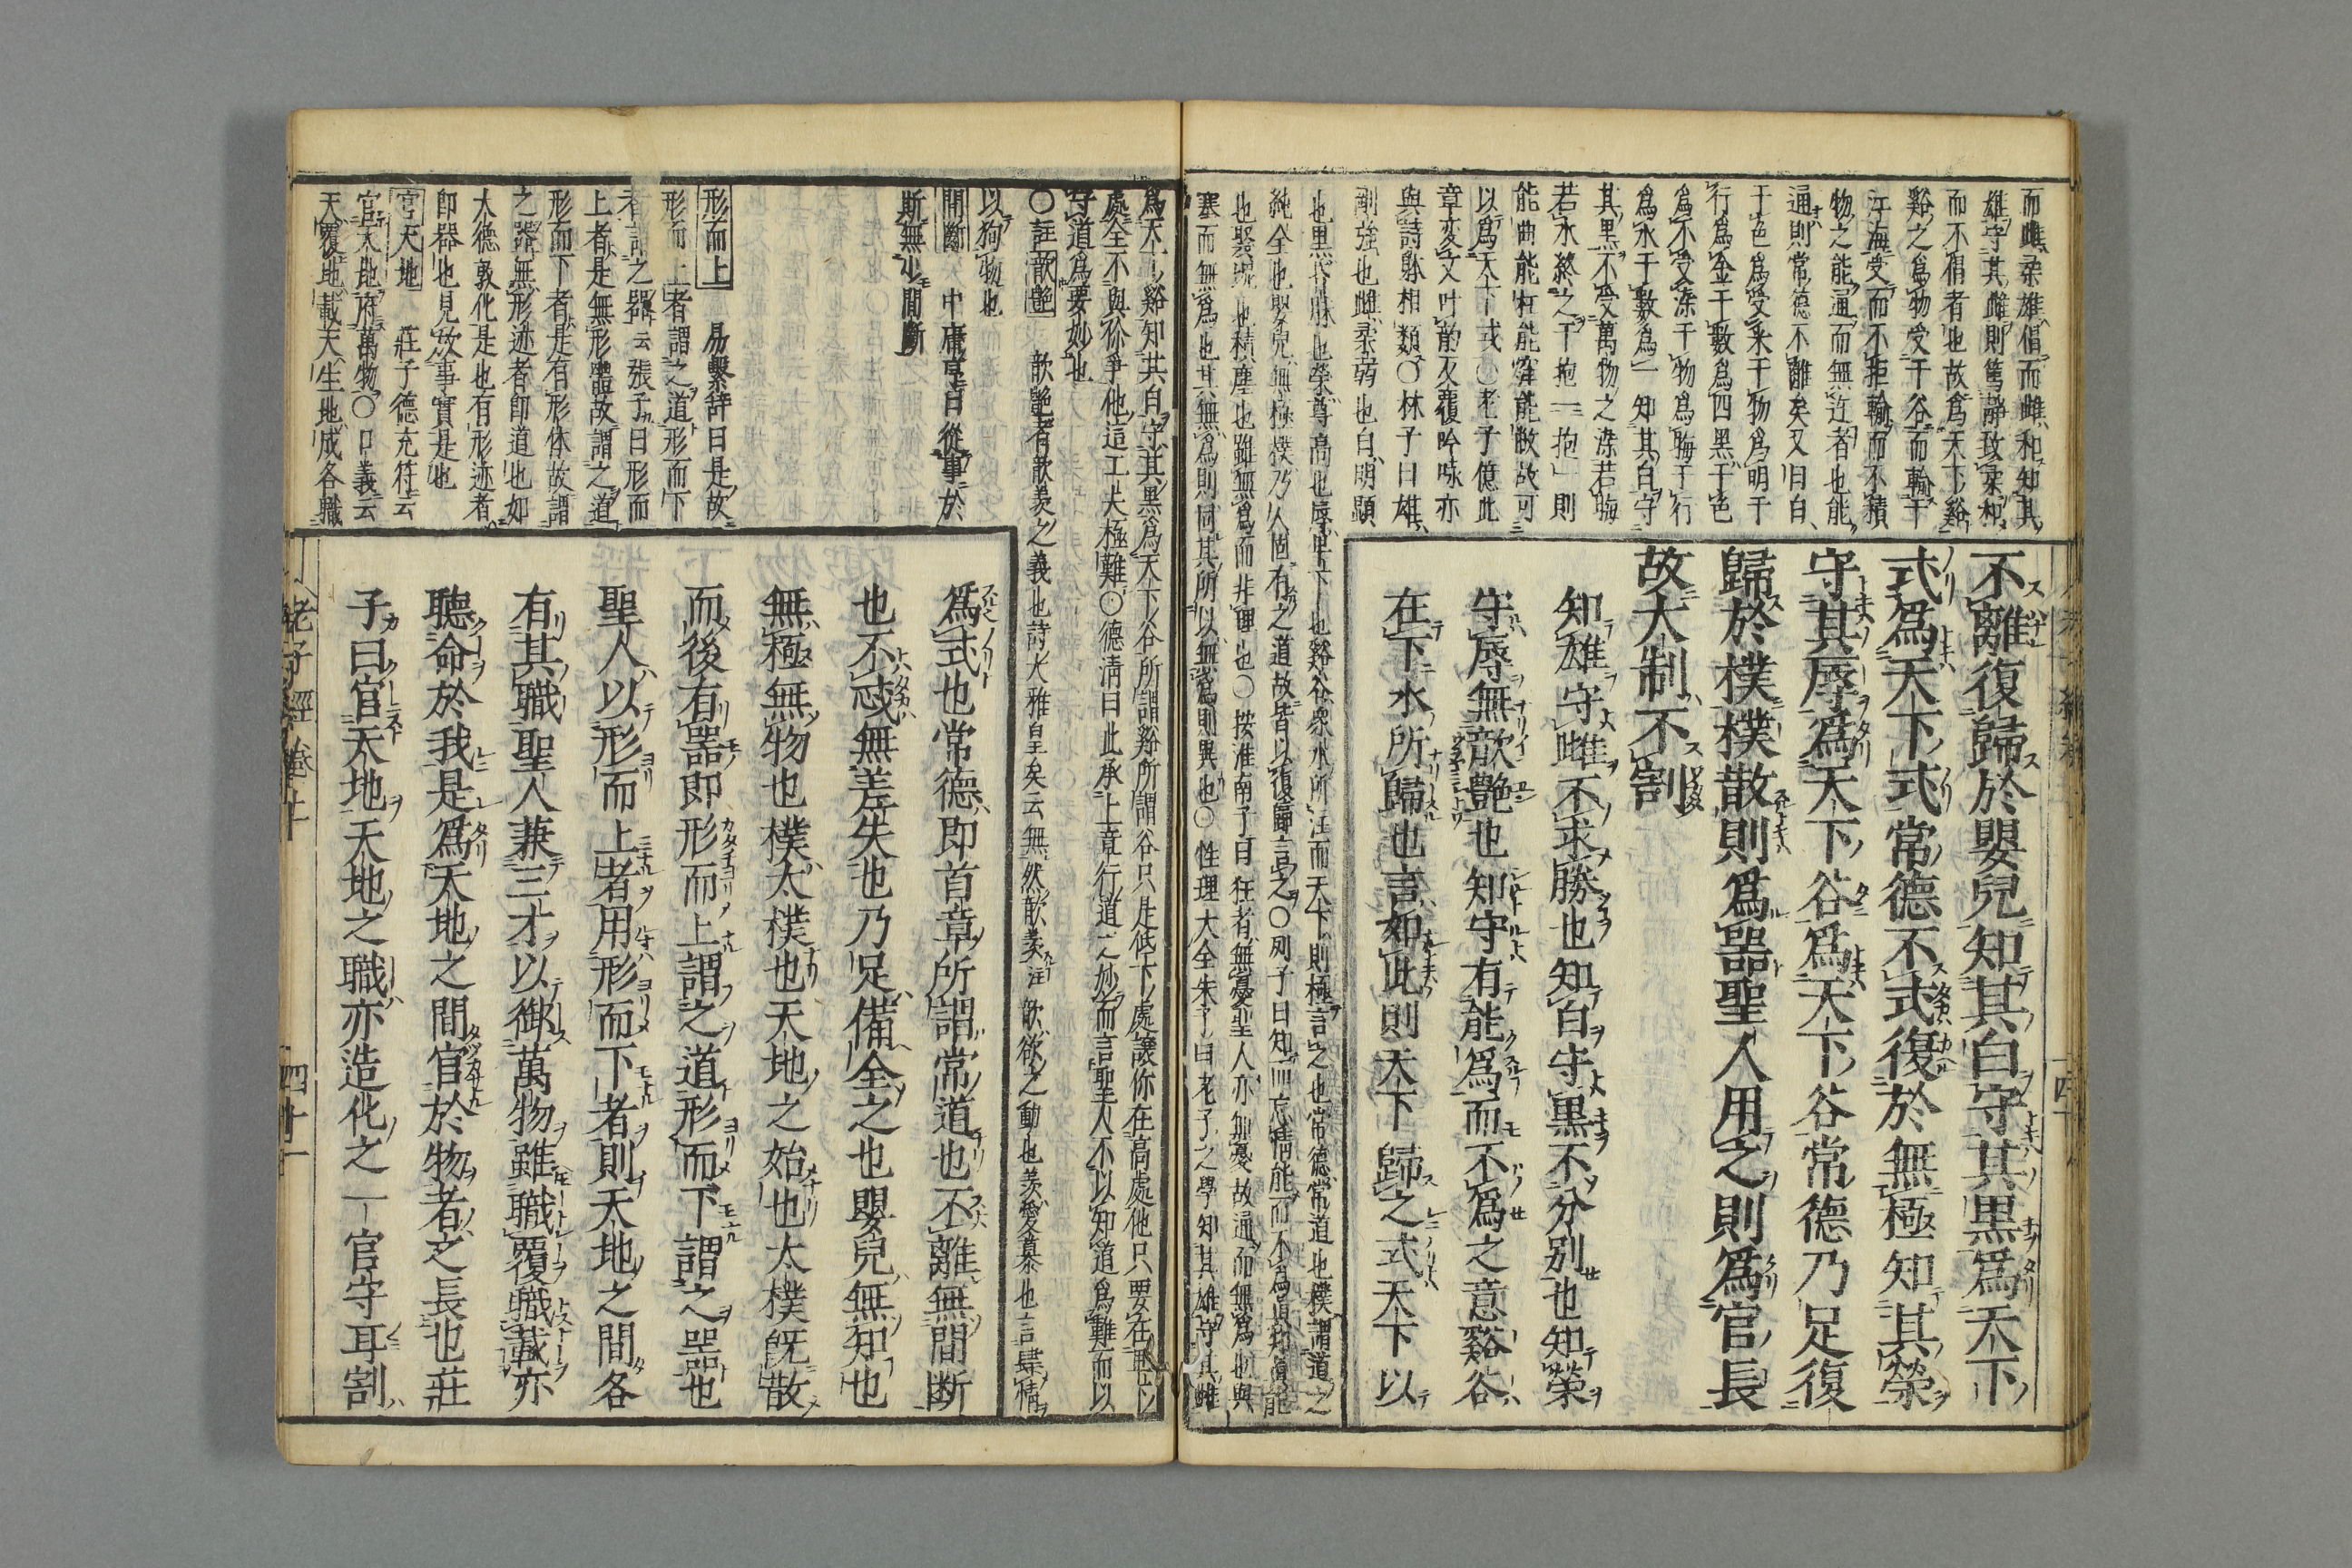 而雌柔雄倡而雌和知其
雄守其雌則篤靜致柔和
而不倡者也故爲天下谿
谿之爲物受于谷而輸于
江海受而不拒輸而不積
物之能通而無迕者也能
通則常德不離矣又曰白
于色爲受采于物爲明于
行爲金于數爲四黑于色
爲不受染于物爲晦于行
爲水于數爲一知其白守
其黑不受萬物之染若晦
若水終之于抱一抱一則
能曲能枉能窪能敝故可
以爲天下式○老子億此
章変文叶韵反覆吟咏亦
與詩躰相類○林子曰雄
剛強也雌柔弱也白明顯
也黑 也榮尊高也辱卑下也谿谷衆水所注而天下則極言之也常德常道也樸謂道之
純全也嬰兒無極樸乃人固有之道故皆以復歸言之○列子曰知而忘情能而不爲眞知眞能
也聚塊也積塵也雖無爲而非理也○按淮南子曰狂者無憂聖人亦無憂故通而無爲也與
塞而無爲也其無爲則同其所以無爲則異也○性理大全朱子曰老子之學知其雄守其雌
不離復歸於嬰兒知其白守其黑爲天下
式爲天下式常德不忒復於無極知其榮
守其辱爲天下谷爲天下谷常德乃足復
歸於樸樸散則爲器聖人用之則爲官長
故大制不割
知雄守雌不求勝也知白守黑不分別也知榮
守辱無歆艷也知守有能爲而不爲之意谿谷
在下水所歸也言如此則天下歸之式天下以
爲天下谿知其白守其黑爲天下谷所謂谿所謂谷只是低下處讓你在高處他只要在卑下
處全不與你爭他這工夫極難○德淸曰此承上章行道之妙而言聖人不以知道爲難而以
守道爲要妙也
○註歆艷 歆艷者歆羨之義也詩大雅皇矣云無然歆羨注歆欲之動也羨愛慕也言肆情
以狥物也
間斷 中庸章 曰從事於
斯無少間斷
形而上 易繫辞曰是故
形而上者謂之道形而下
者謂之器云張子曰形而
上者是無形體故謂之道
形而下者是有形体故謂
之器無形迹者即道也如
大德敦化是也有形迹者
即器也見於事實是也
官天地 莊子德充符云
官天地府萬物○口義云
天覆地載天生地成各職
爲式也常德即首章所謂常道也不離無間斷
也不忒無差失也乃足備全之也嬰兒無知也
無極無物也樸太樸也天地之始也太樸旣散
而後有器即形而上謂之道形而下謂之器也
聖人以形而上者用形而下者則天地之間各
有其職聖人兼三才以御萬物雖職覆職載亦
聽命於我是爲天地之間官於物者之長也莊
子曰官天地天地之職亦造化之一官守耳割
老子經卷上
四十一